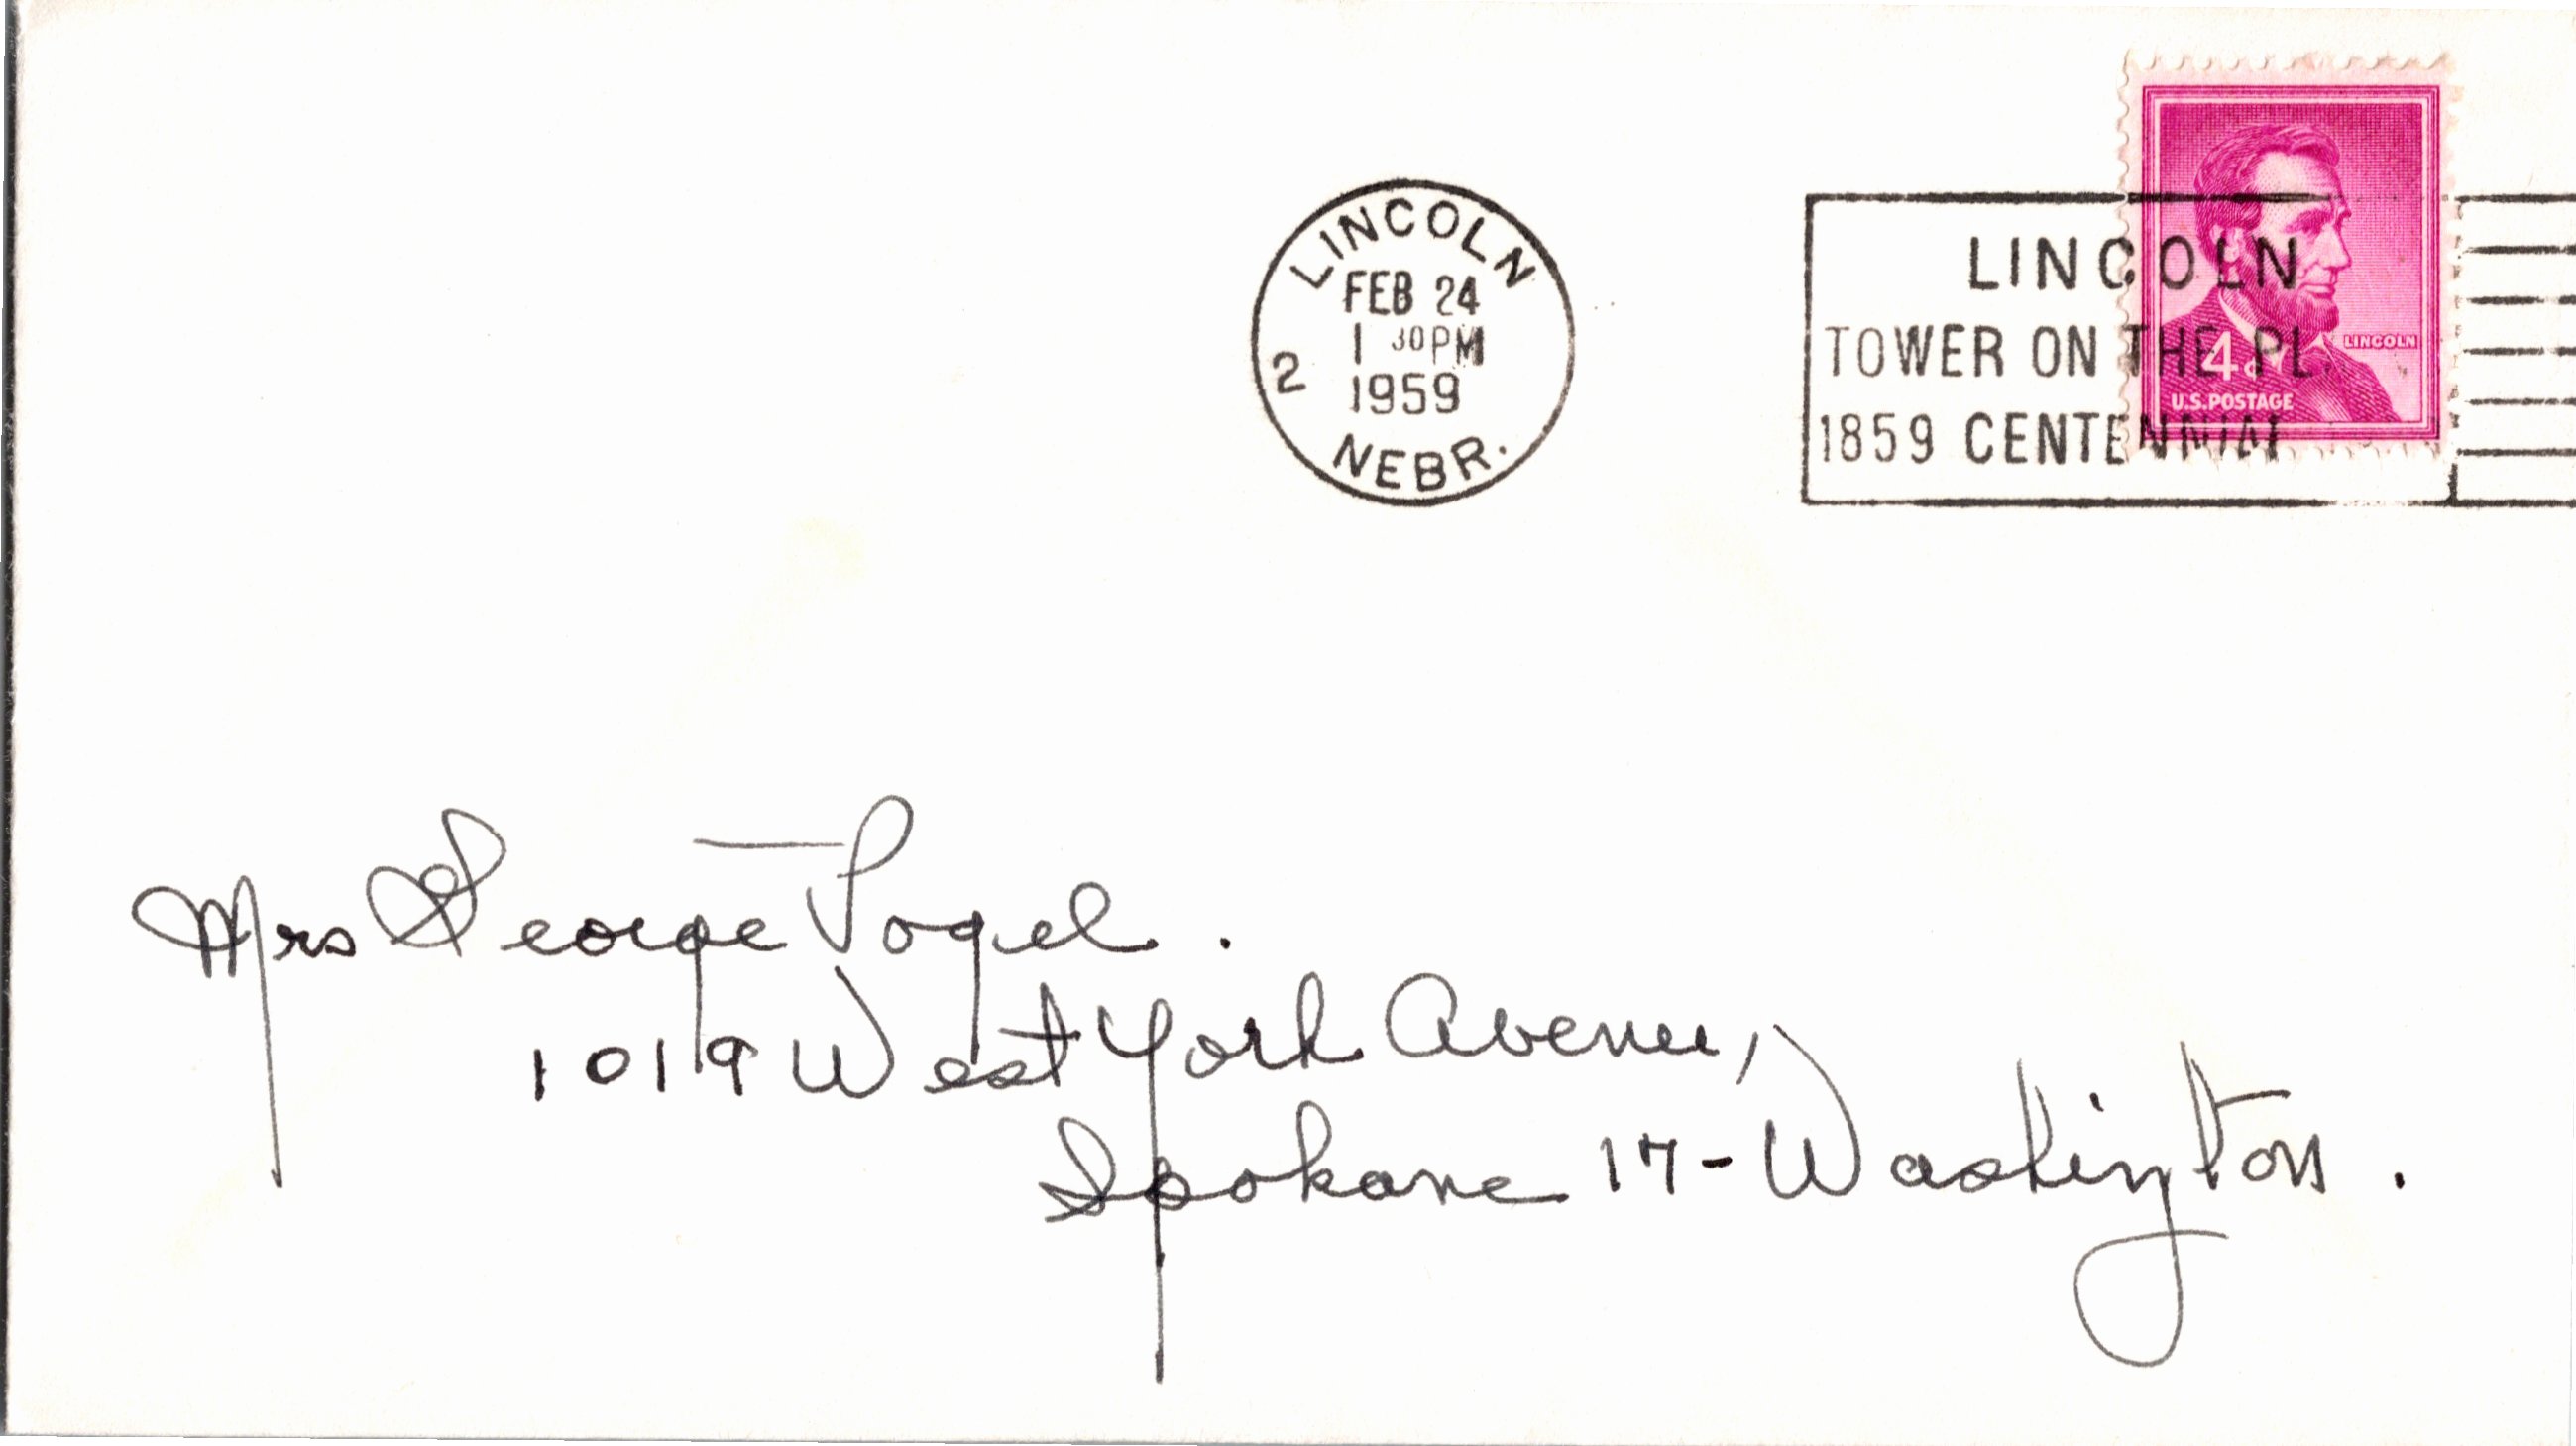 LINCOLN
FEB 24
1 30PM
2 1959
NEBR.
LINCOLN
TOWER ON THE PL
1859 CENTENNIAL
LINCOLN
4¢
U.S.POSTAGE
Mrs George Vogel.
1019 West York Avenue,
Spokane 17-Washington.